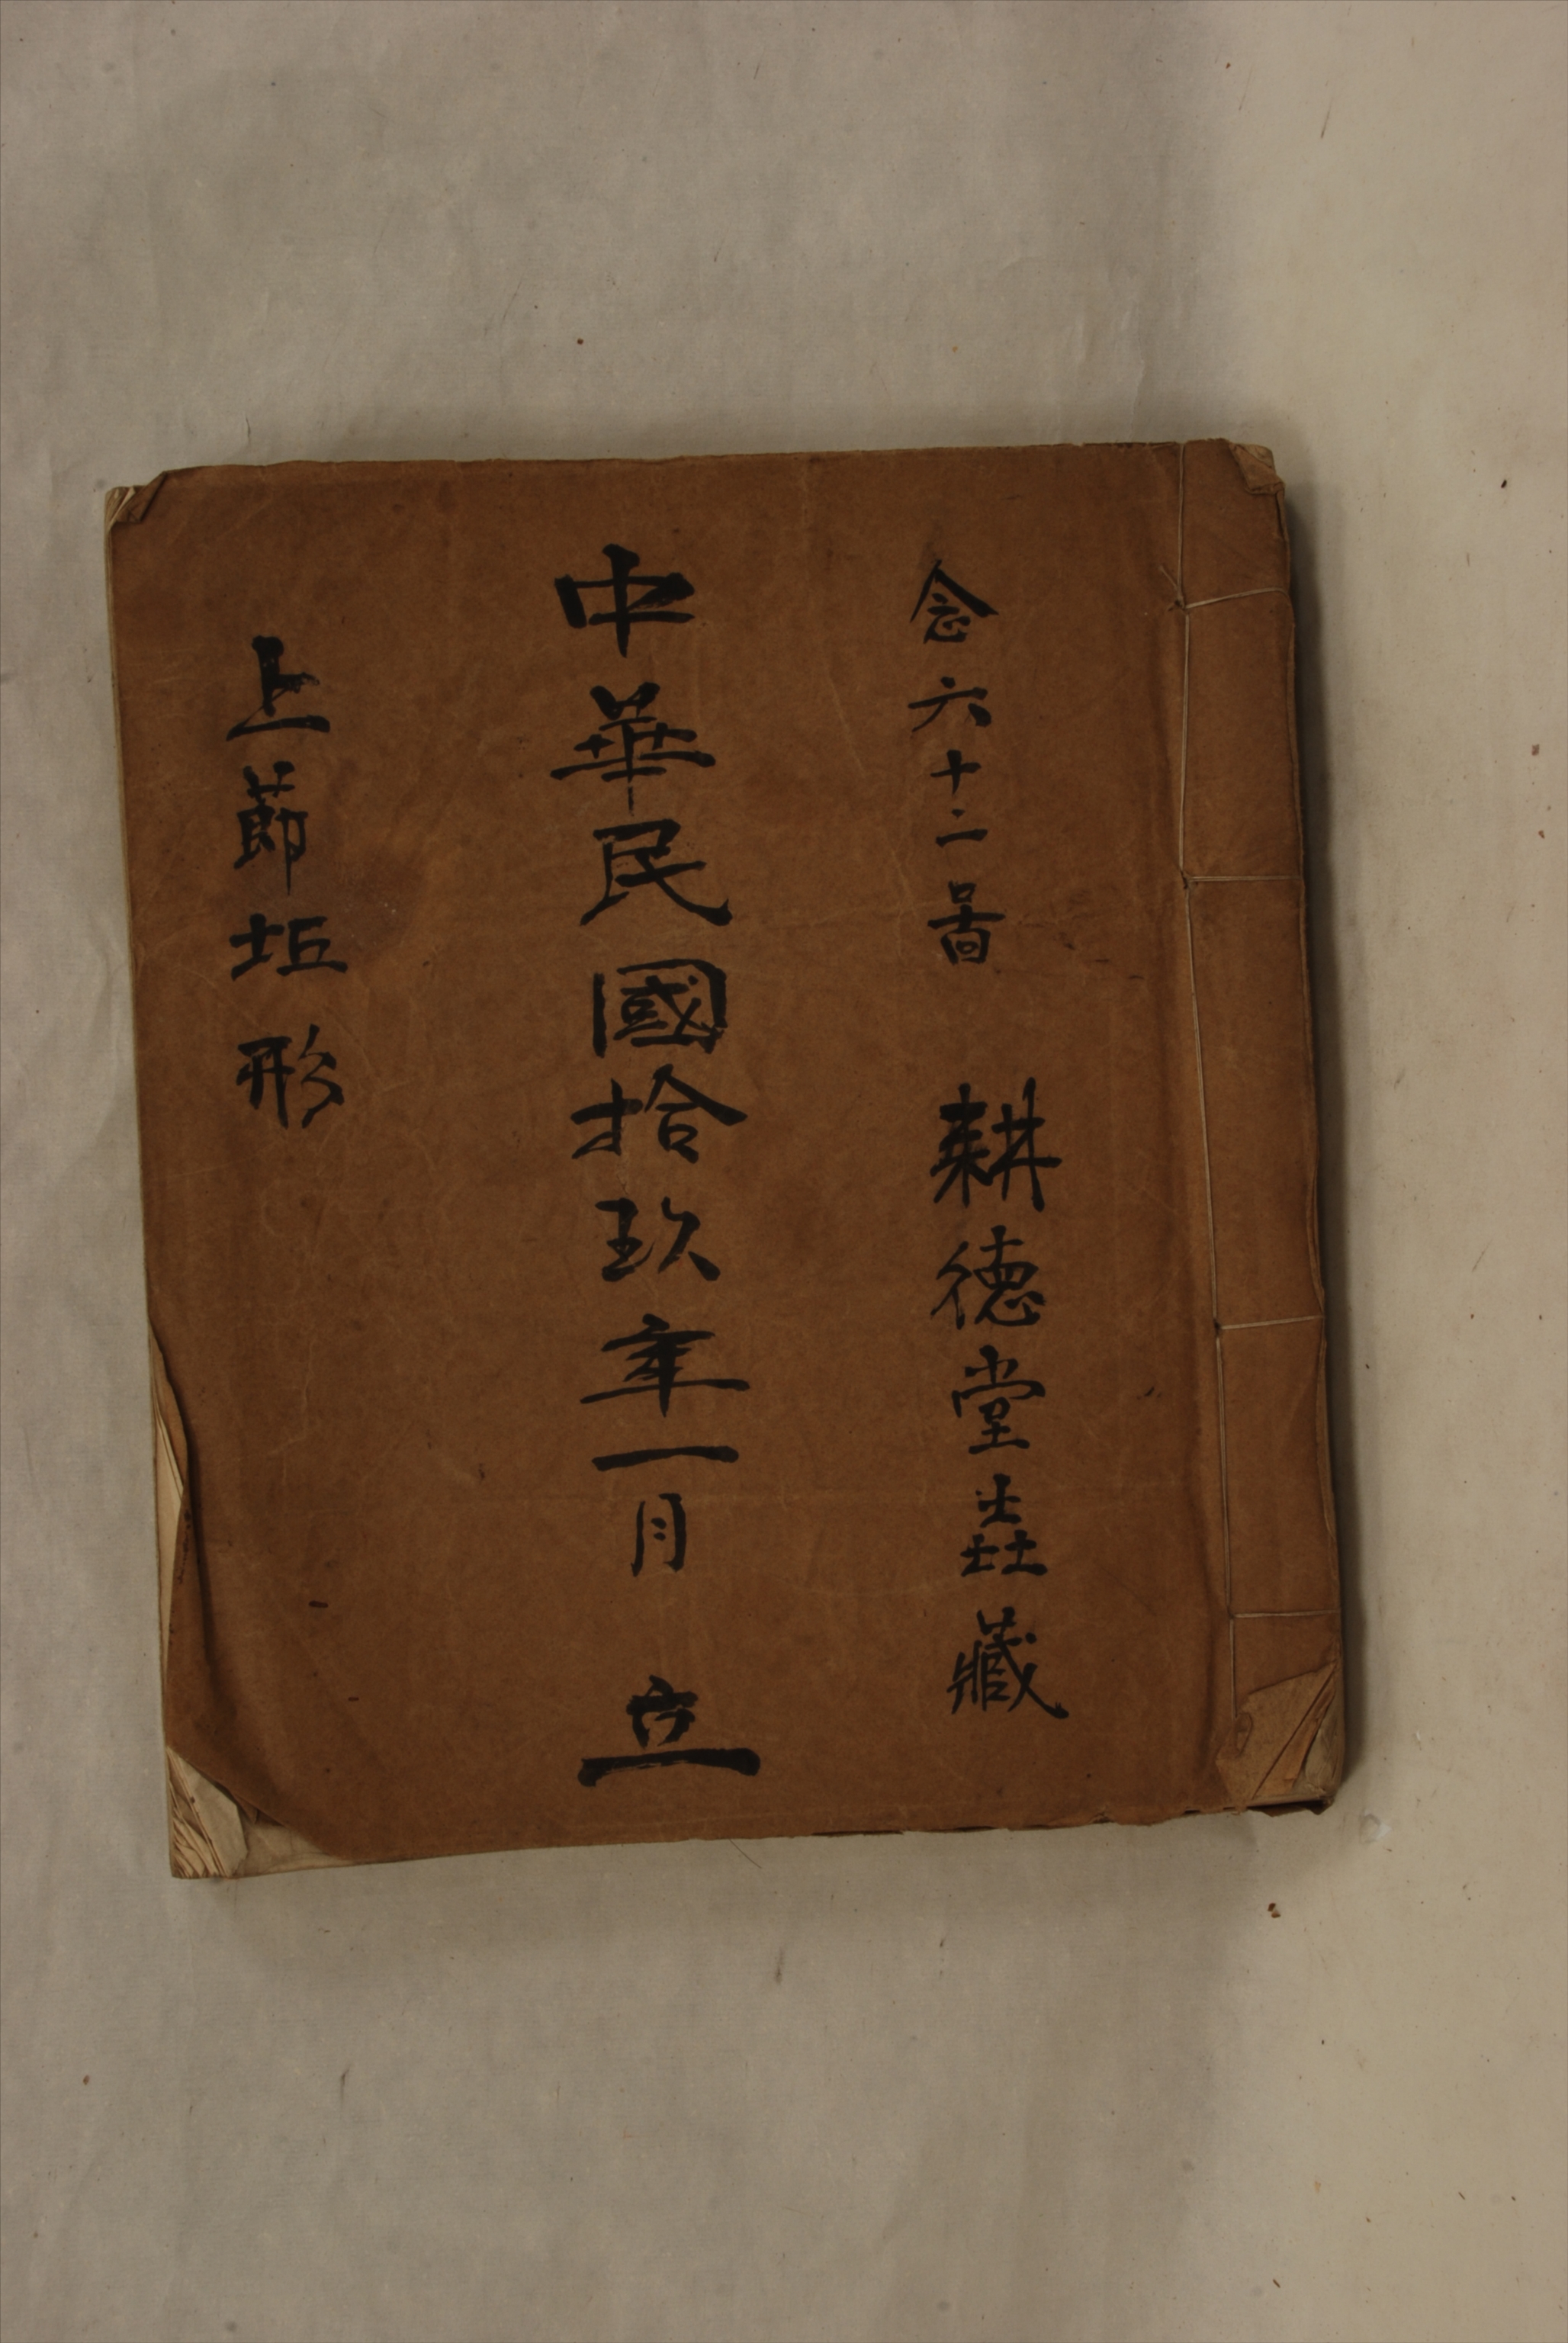 念六十二啚　耕德堂垚藏
中華民國拾玖年一月　立
上莭坵形